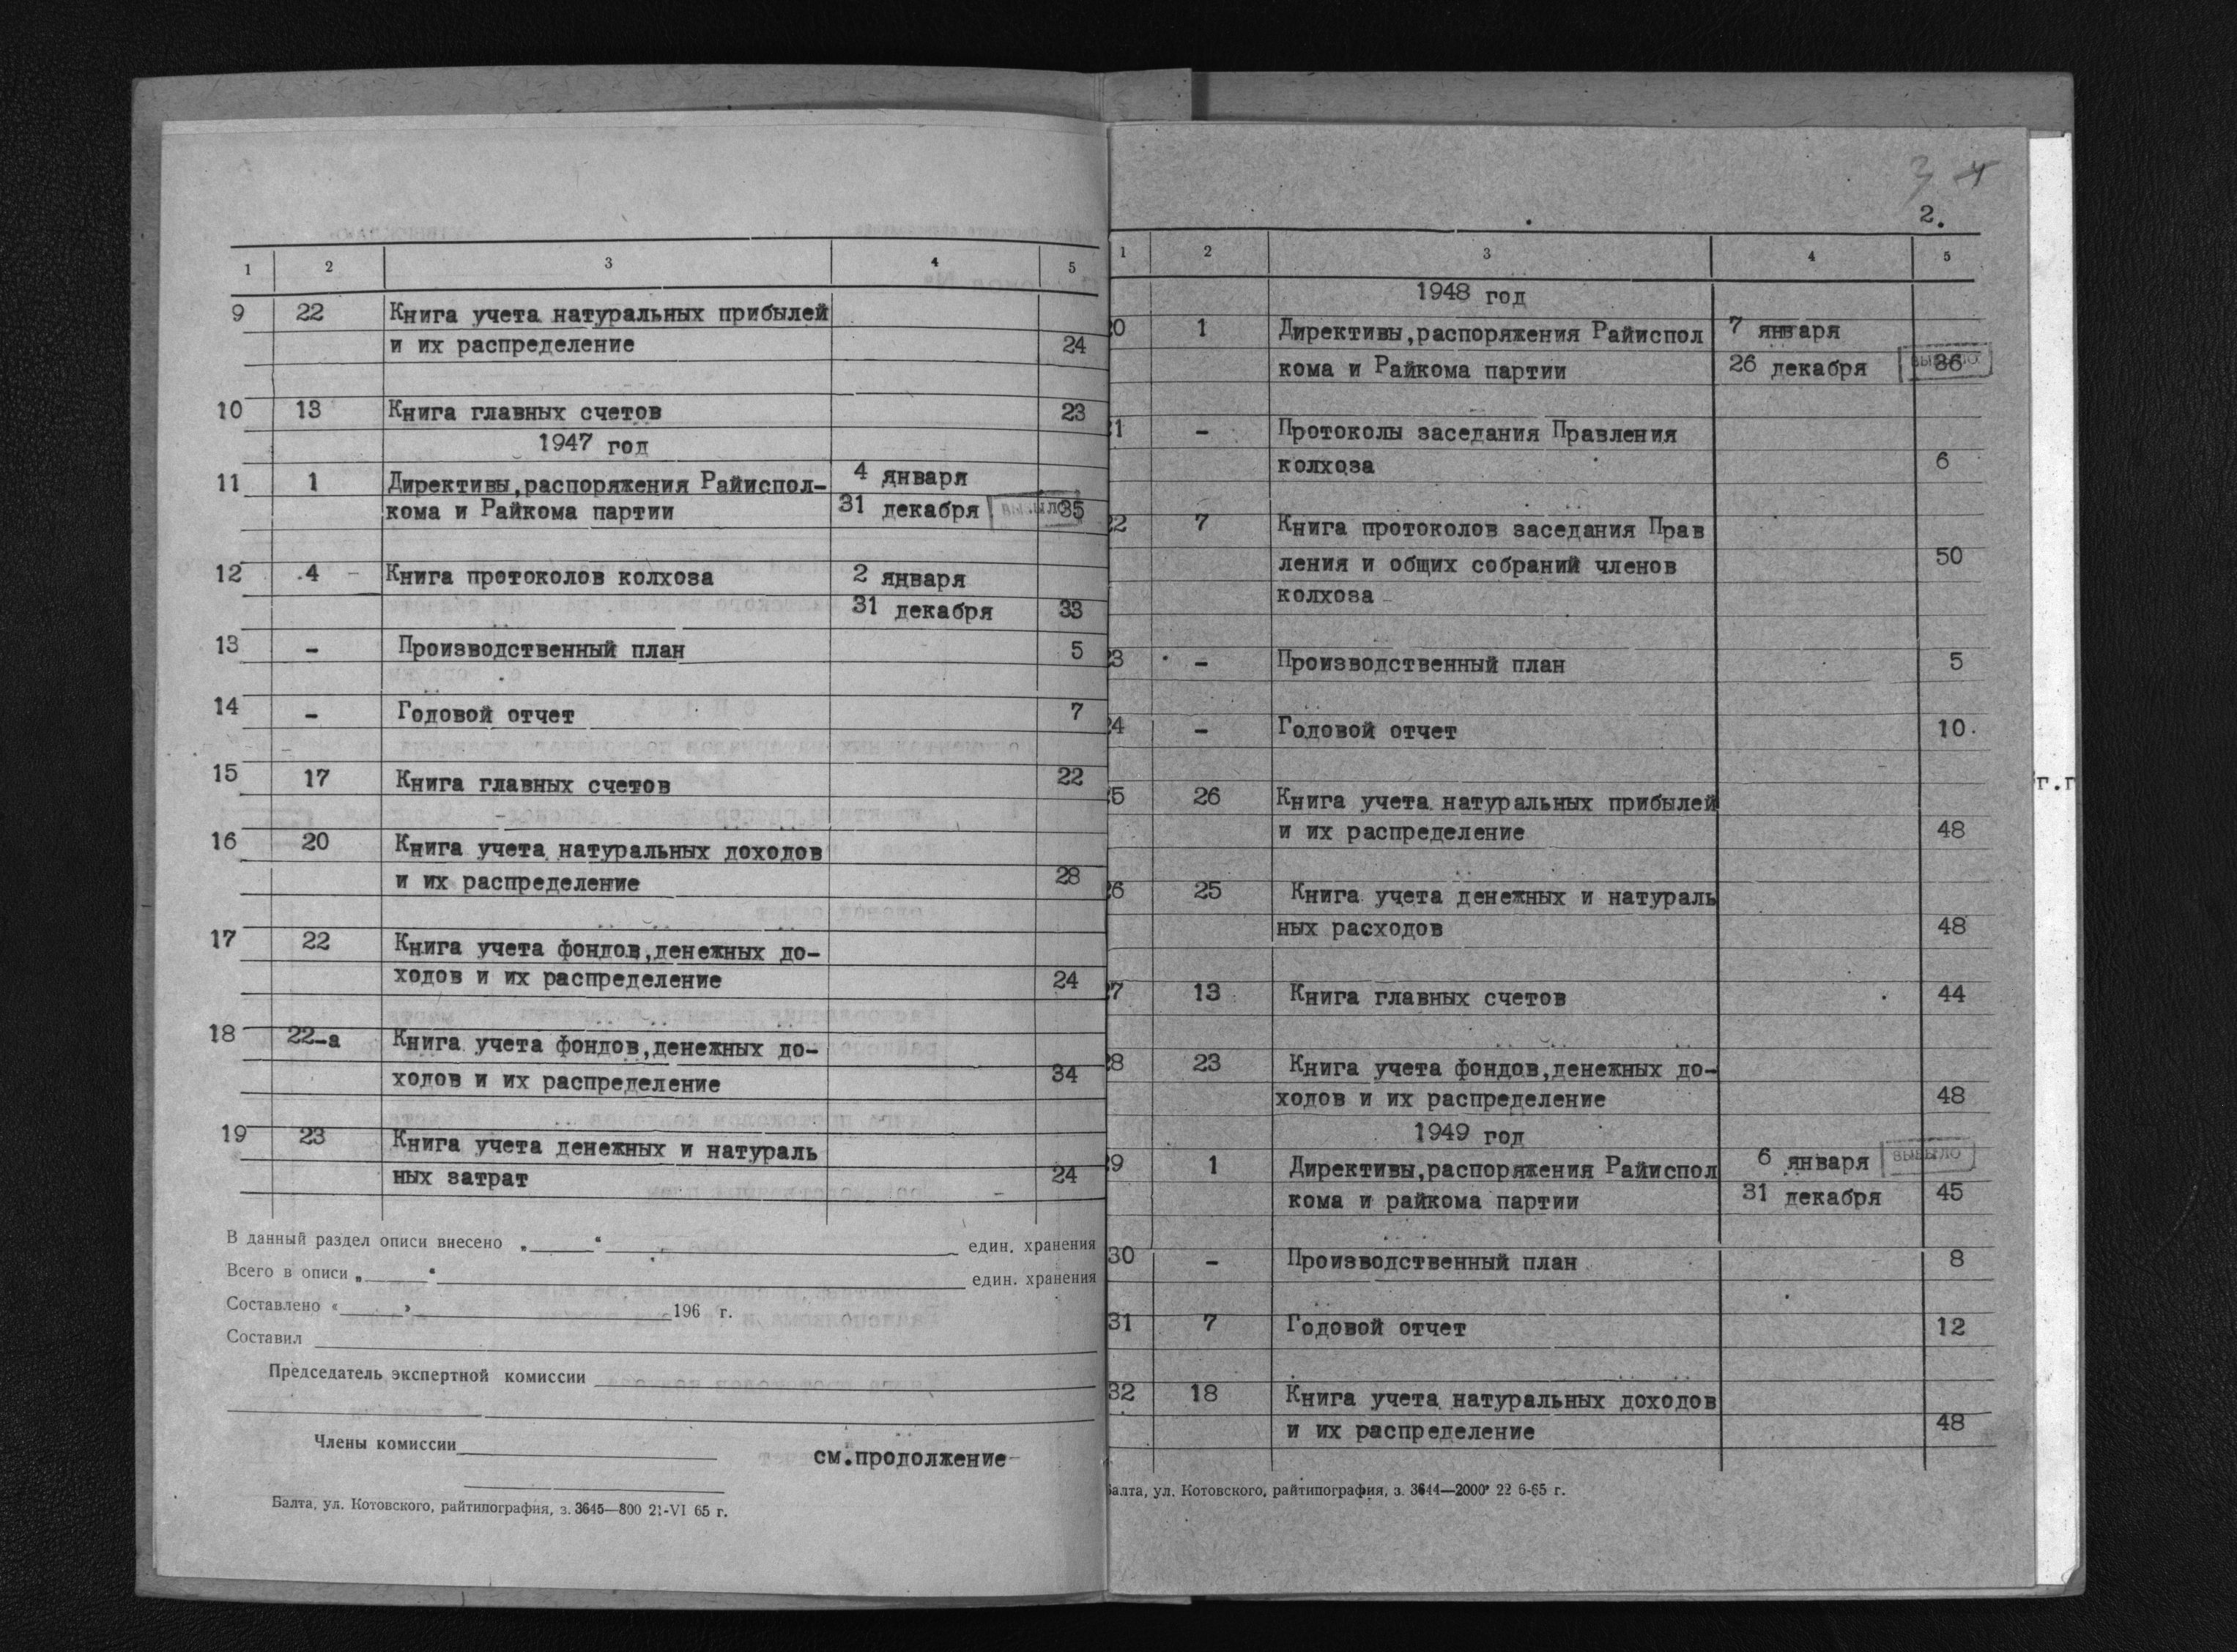 1 2 3 4 5
9 22 Книга учета натуральных прибылей
и их распределение 24
10 13 Книга главных счетов 23
1947 год
11 1 Директивы,распоряжения Райиспол- 4 января
кома и Райкома партии 31 декабря 35
12 4 Книга протоколов колхоза 2 января
31 декабря 33
13 - Производственный план 5
14 - Годовой отчет 7
15 17 Книга главных счетов 22
16 20 Книга учета натуральных доходов
и их распределение 28
17 22 Книга учета фондов,денежных до-
ходов и их распределение 24
18 22-а Книга учета фондов,денежных до-
ходов и их распределение 34
19 23 Книга учета денежных и натураль
ных затрат 24
В данный раздел описи внесено „ “ един. хранения
Всего в описи „ “ един. хранения
Составлено « » 196 г.
Составил
Председатель экспертной комиссии
Члены комиссии
см.продолжение
Балта, ул. Котовского, райтипография, з. 3645—800 21-VI 65 г.
3 4
2.
1 2 3 4 5
1948 год
0 1 Директивы,распоряжения Райиспол 7 января
кома и Райкома партии 26 декабря ВЫБЫЛО 36
1 - Протоколы заседания Правления
колхоза 6
2 7 Книга протоколов заседания Прав
ления и общих собраний членов 50
колхоза
3 - Производственный план 5
4 - Годовой отчет 10.
5 26 Книга учета натуральных прибылей
и их распределение 48
6 25 Книга учета денежных и натураль
ных расходов 48
7 13 Книга главных счетов 44
8 23 Книга учета фондов,денежных до-
ходов и их распределение 48
1949 год
9 1 Директивы,распоряжения Райиспол 6 января ВЫБЫЛО
кома и райкома партии 31 декабря 45
30 - Производственный план 8
31 7 Годовой отчет 12
32 18 Книга учета натуральных доходов
и их распределение 48
алта, ул. Котовского, райтипография, з. 3644—2000 22 6-65 г.
г.г